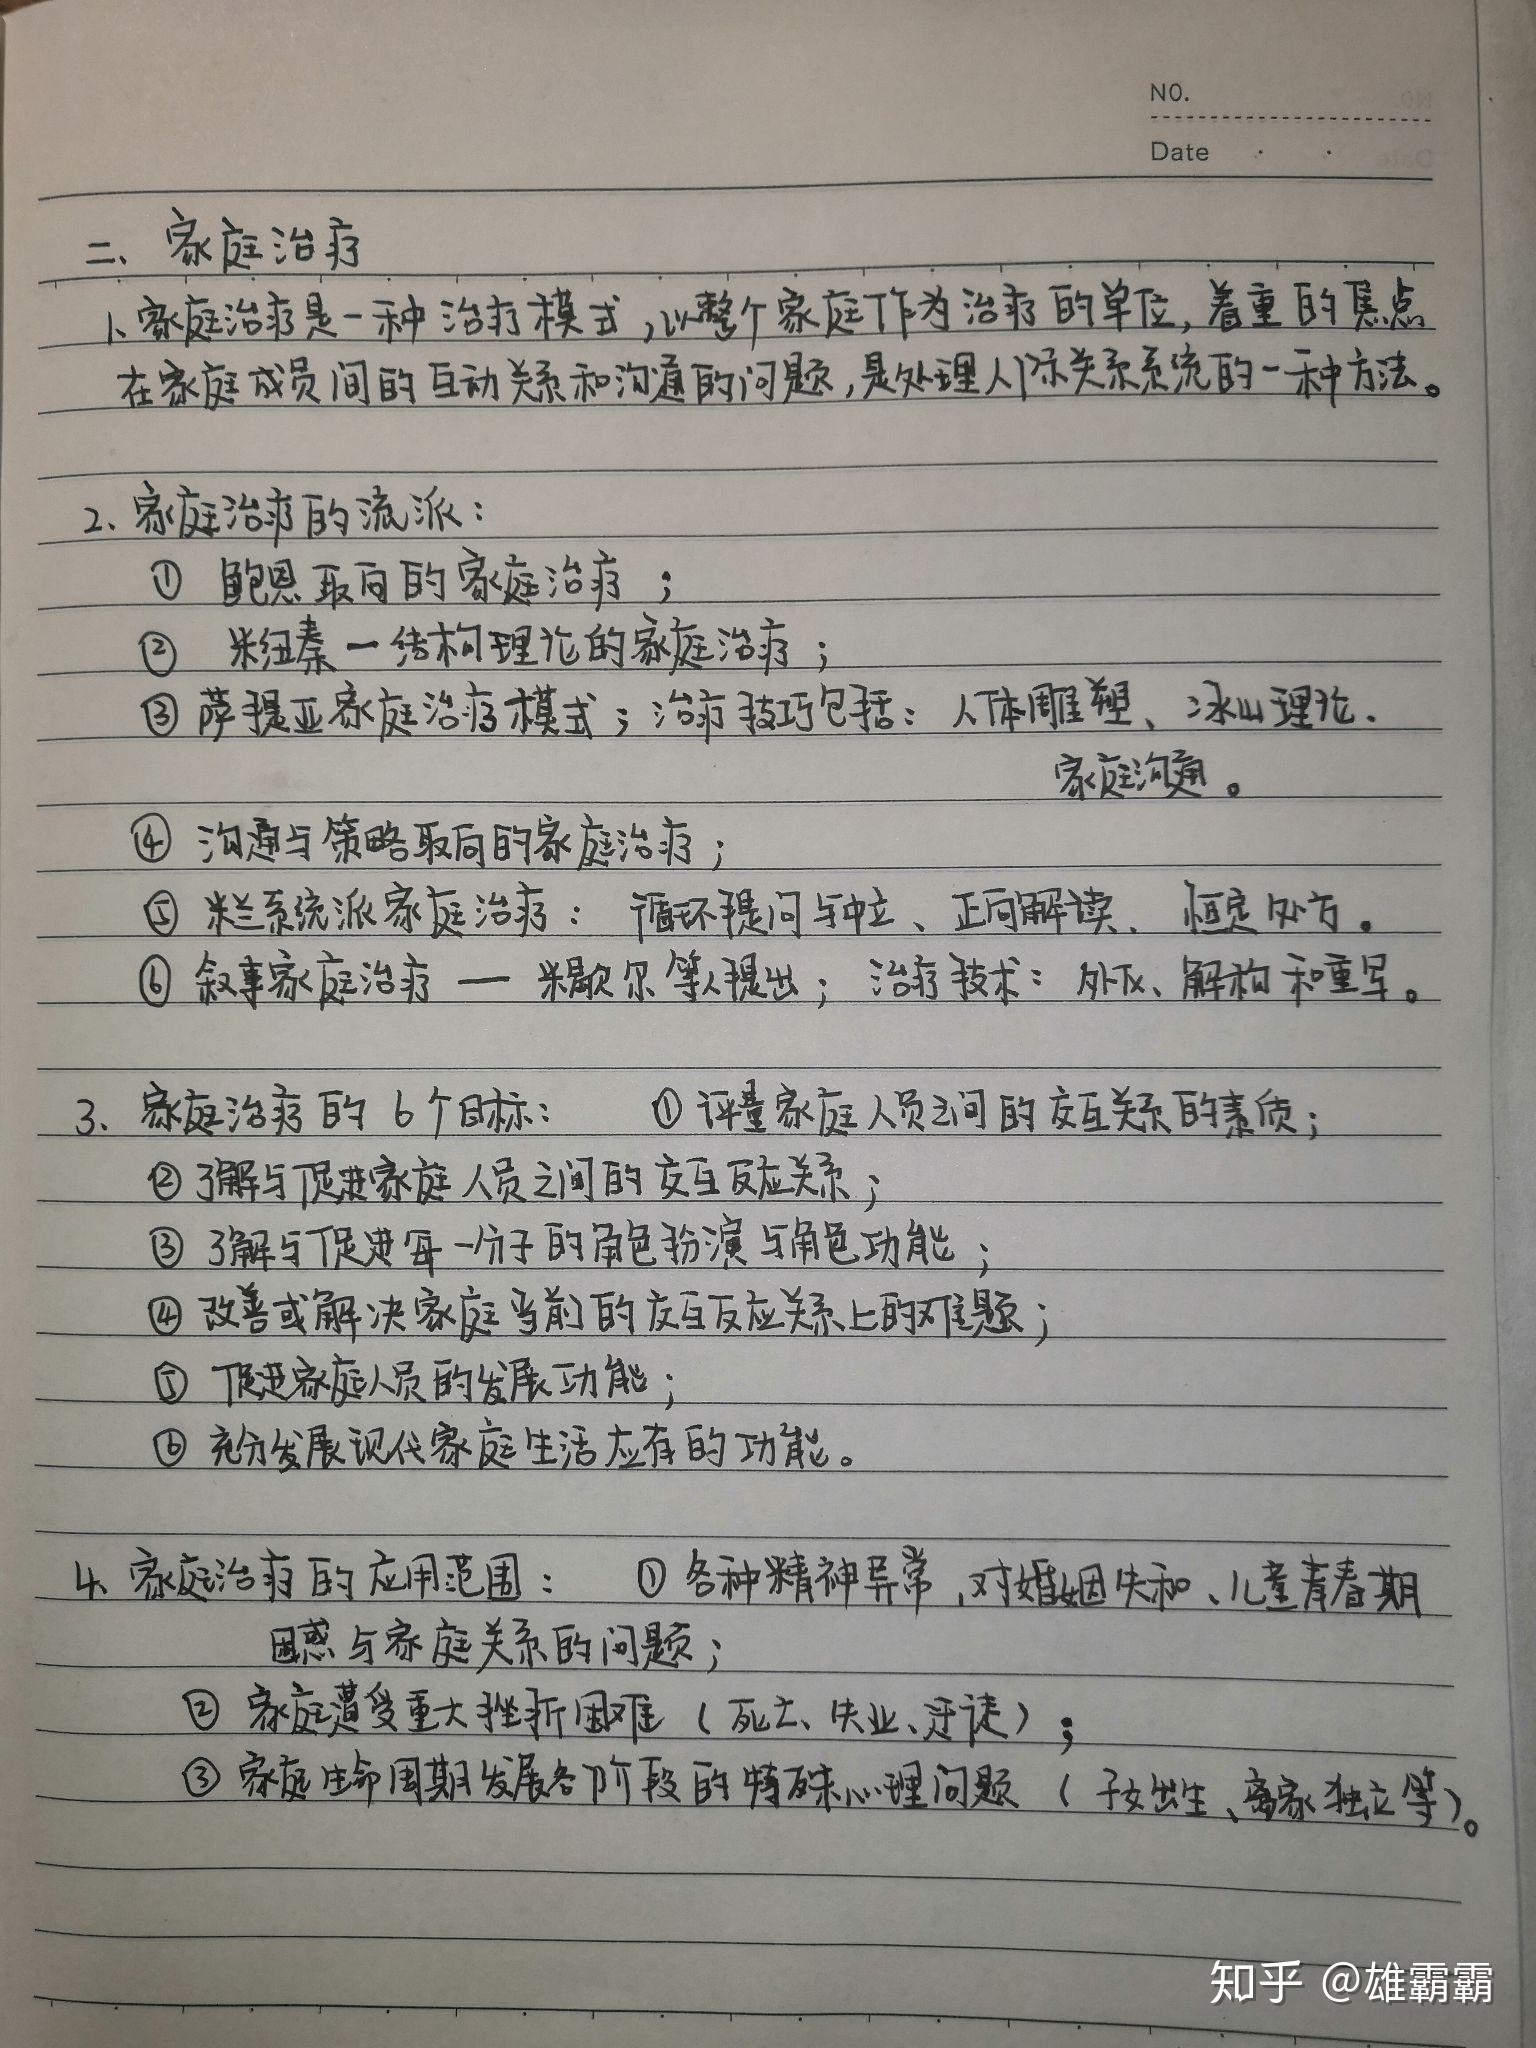 NO.
Date
二、家庭治疗
1、家庭治疗是一种治疗模式,以整个家庭作为治疗的单位,着重的焦点
在家庭成员间的互动关系和沟通的问题,是处理人际关系系统的一种方法。
2、家庭治疗的流派:
① 鲍恩取向的家庭治疗;
② 米纽秦一结构理论的家庭治疗;
③ 萨提亚家庭治疗模式;治疗技巧包括:人体雕塑、冰山理论、
家庭沟通。
④ 沟通与策略取向的家庭治疗;
⑤ 米兰系统派家庭治疗:循环提问与中立、正向解读、恒定处方。
⑥ 叙事家庭治疗 — 米歇尔等人提出;治疗技术:外化、解构和重写。
3、家庭治疗的6个目标: ①评量家庭人员之间的交互关系的素质;
②了解与促进家庭人员之间的交互反应关系;
③ 了解与促进每一份子的角色扮演与角色功能;
④ 改善或解决家庭当前的交互反应关系上的难题;
⑤ 促进家庭人员的发展功能;
⑥ 充分发展现代家庭生活应有的功能。
4、家庭治疗的应用范围: ① 各种精神异常,对婚姻失和、儿童青春期
困惑与家庭关系的问题;
② 家庭遭受重大挫折困难(死亡、失业、迁徒);
③ 家庭生命周期发展各阶段的特殊心理问题(子女出生、离家独立等)。
知乎 @雄霸霸